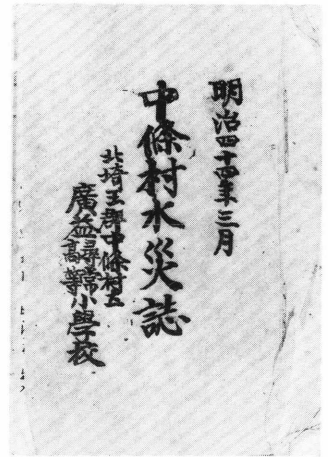 明治四十四年三月
中條村水災誌
北埼玉郡中條村立
廣益尋常高等小學校